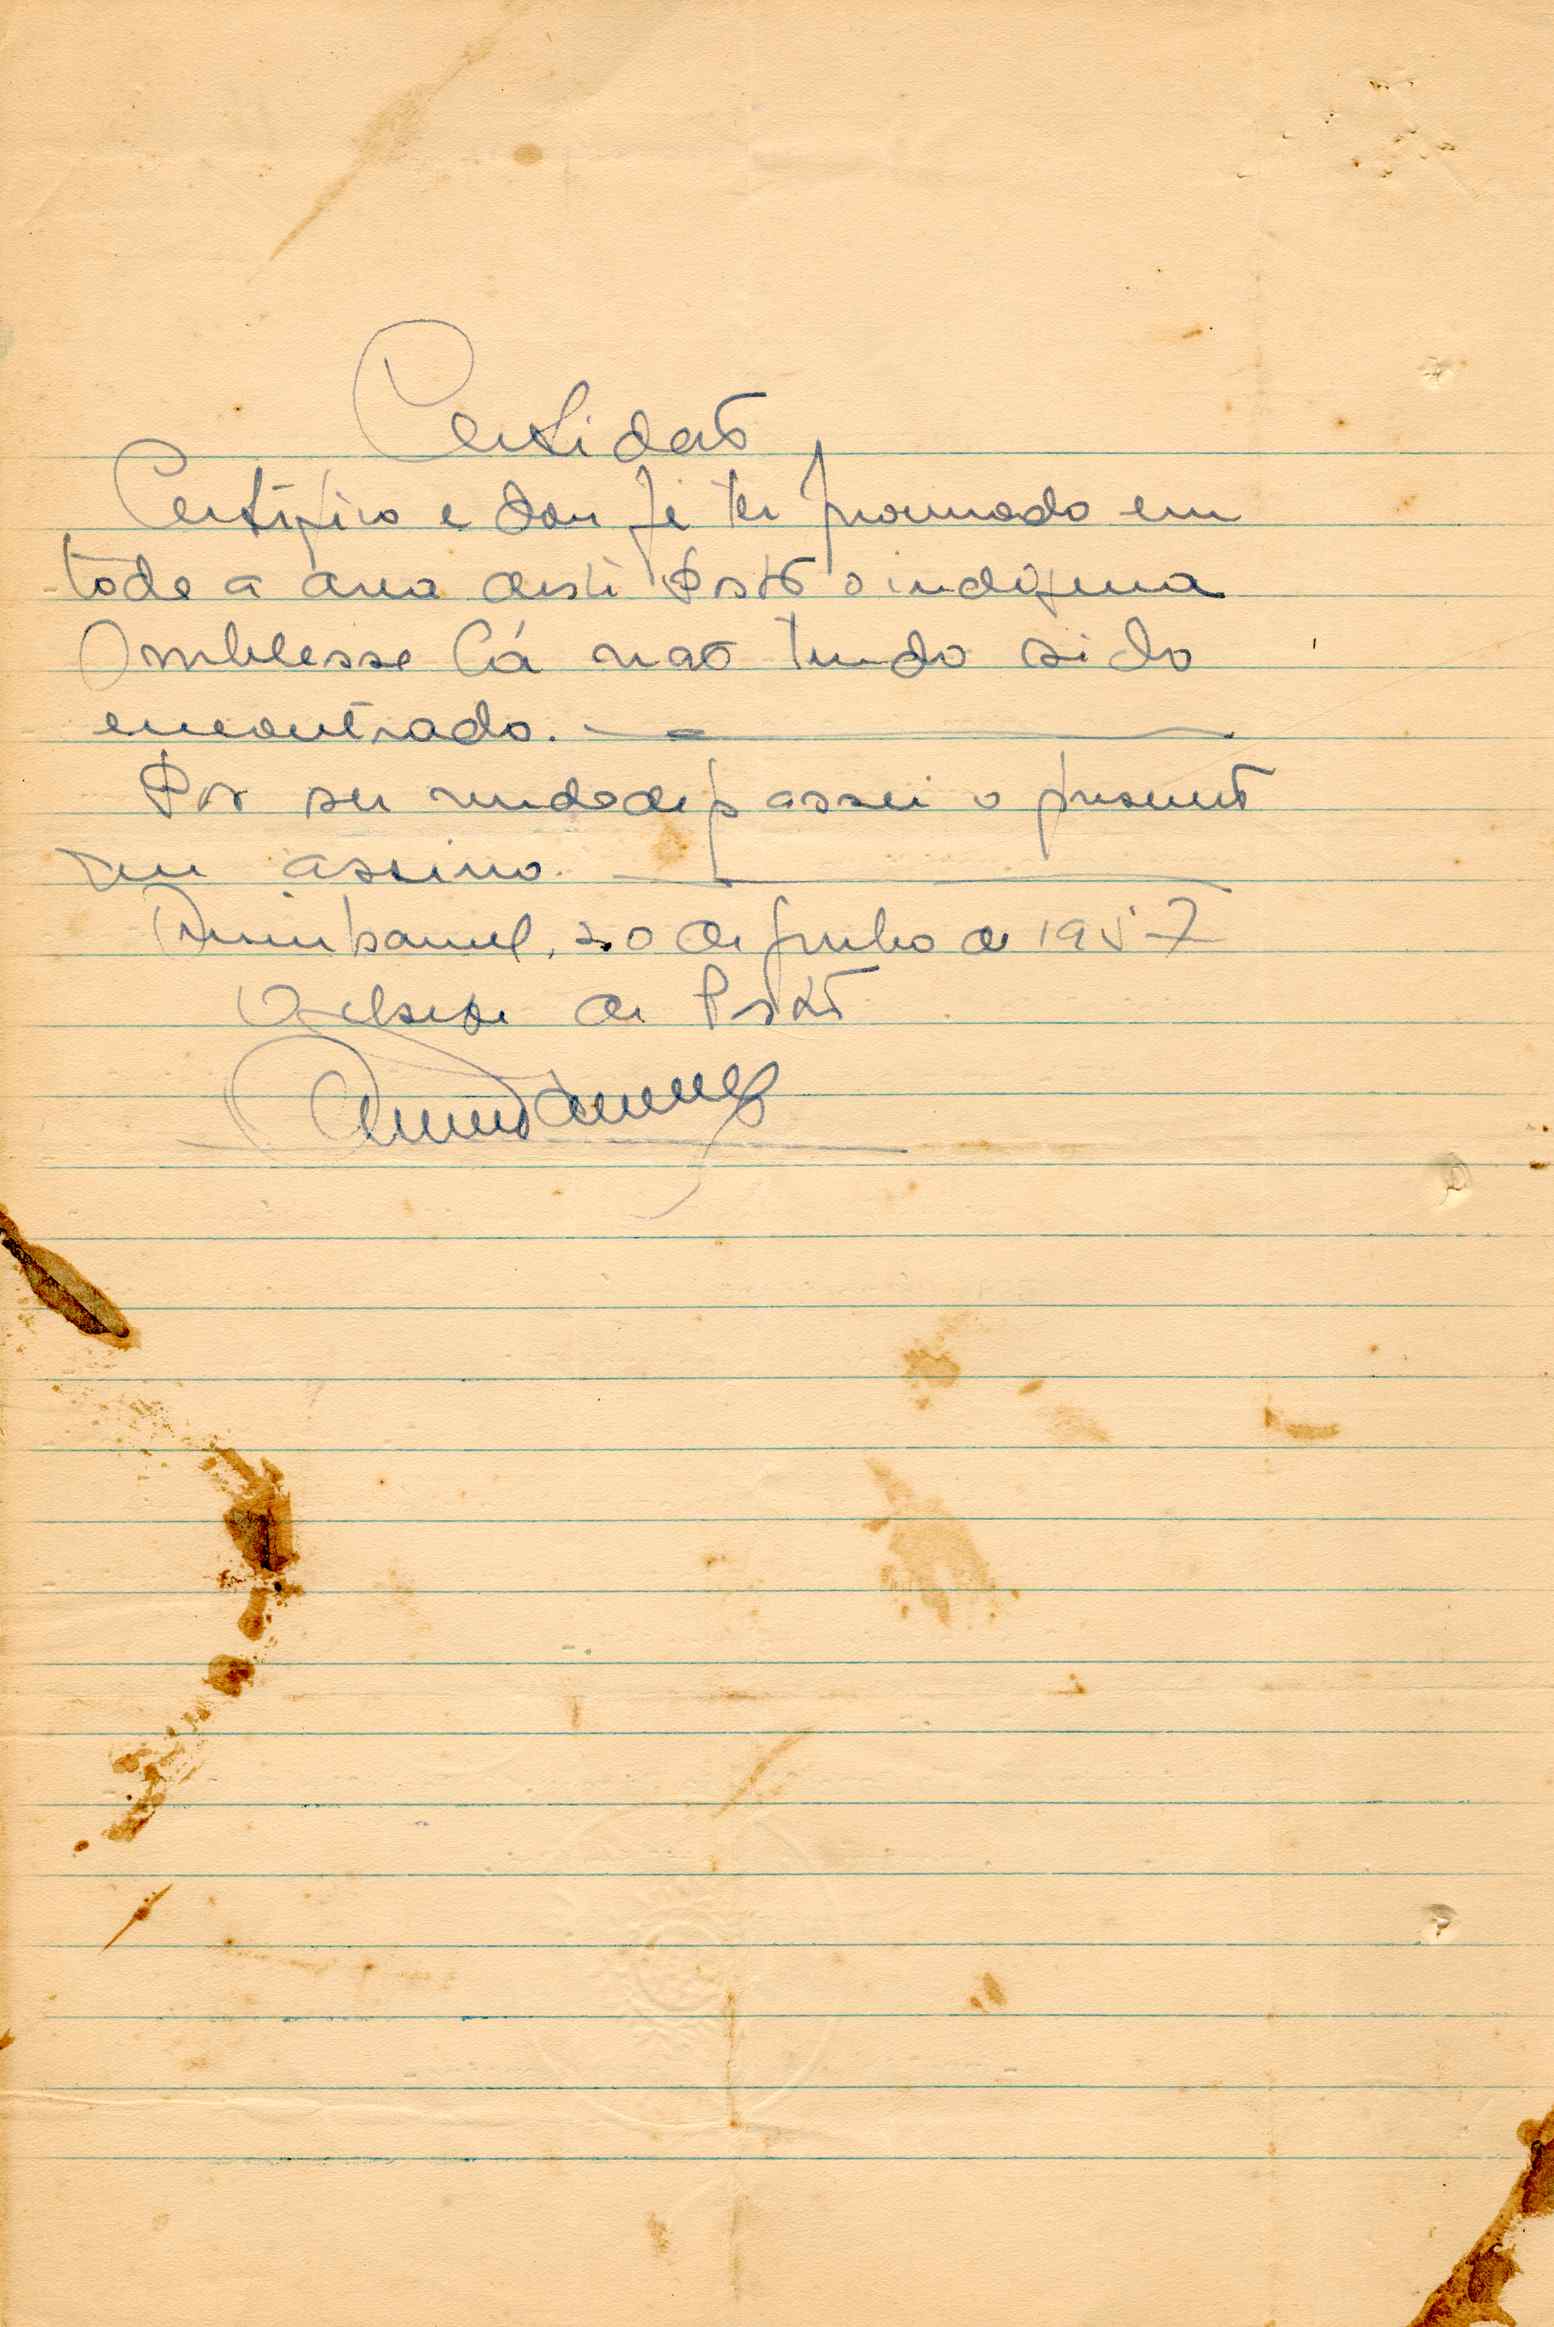 Certidão
Certifico e dou fé ter procurado em
toda a area deste Posto o indigena
Omblesse Cá não tendo sido
encontrado.
Por ser verdade passei o presente
que assino.
20 de junho de 1957
O chefe de Posto